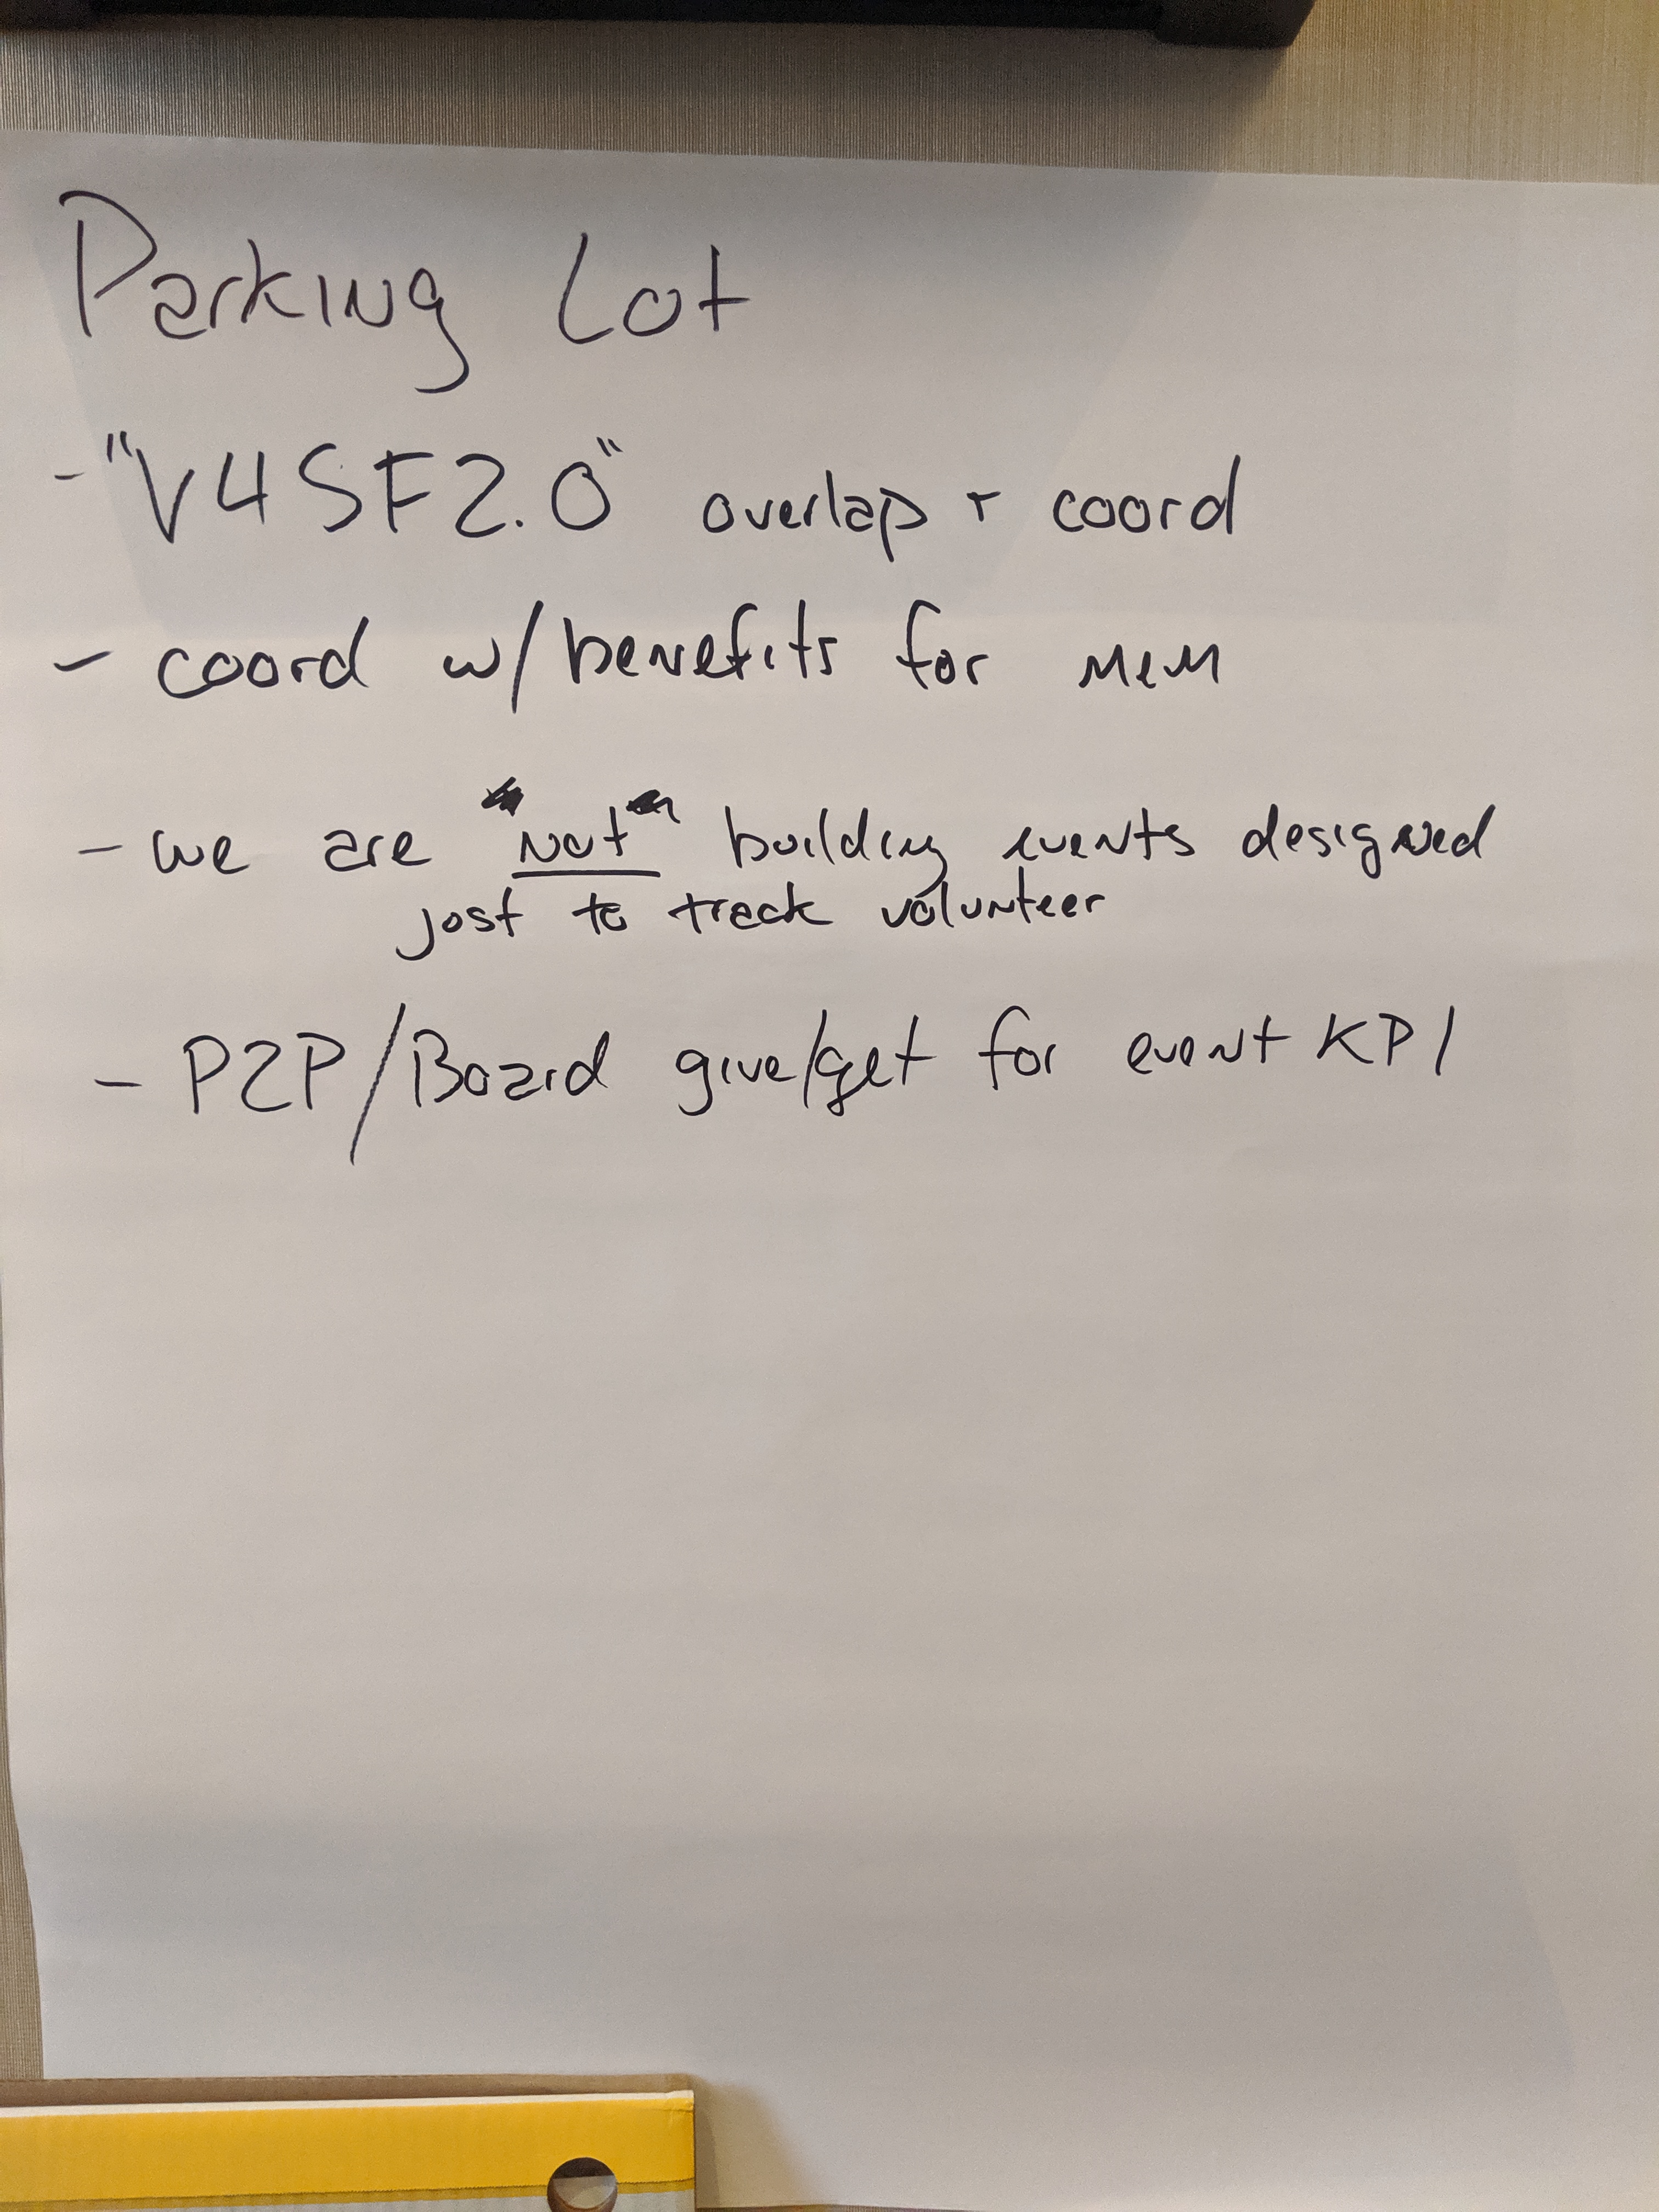 Parking Lot
- "V4SF2.0" overlap + coord
- coord w/benefits for mem
- we are "not" building events designed
just to track volunteer
- P2P/Board give/get for event KPI